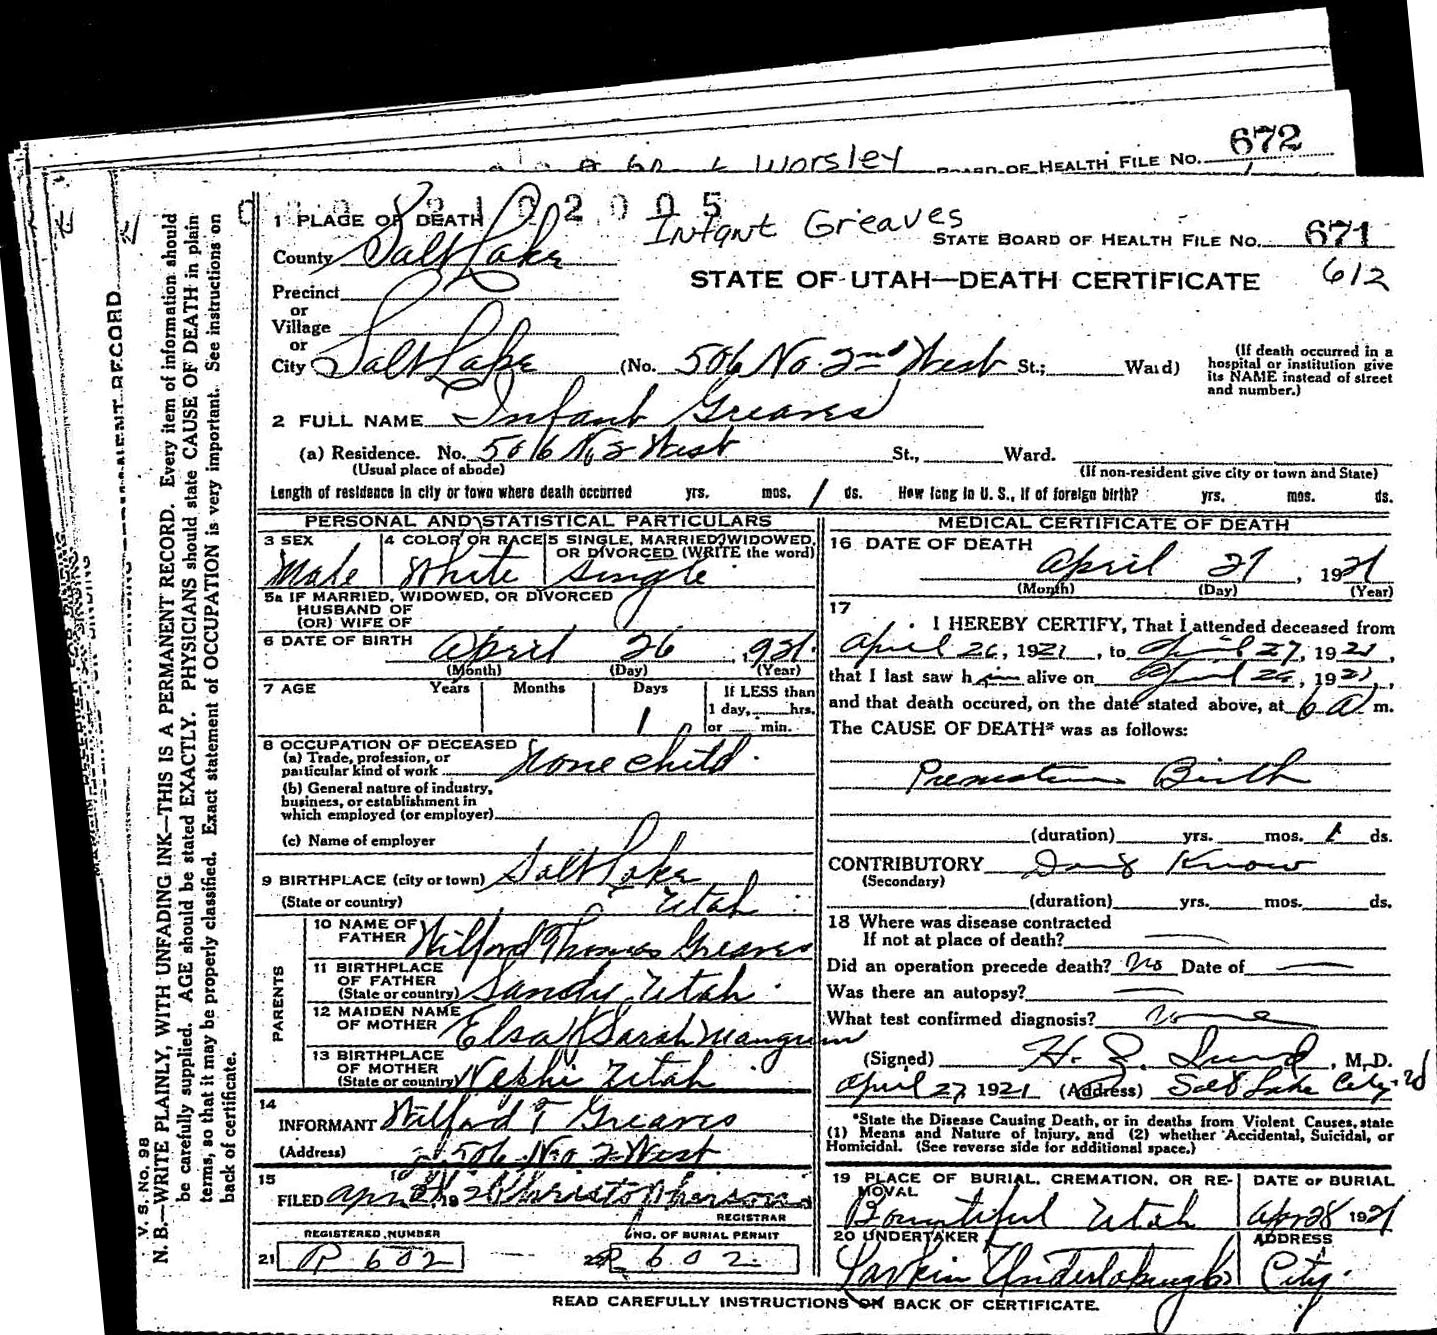 672
Worsley BOARD OF HEALTH FILE NO.
2 1 0 2 0 0 5
Infant Greaves
1 PLACE OF DEATH
STATE BOARD OF HEALTH FILE NO. 671
County Salt Lake
STATE OF UTAH—DEATH CERTIFICATE 612
Precinct
or
Village
or
City Salt Lake (No. 506 No 2nd West St.; Ward)
(If death occurred in a hospital or institution give its NAME instead of street and number.)
2 FULL NAME Infant Greaves
(a) Residence. No. 506 No 2 West St., Ward.
(Usual place of abode) (If non-resident give city or town and State)
Length of residence in city or town where death occurred yrs. mos. 1 ds. How long in U. S., if of foreign birth? yrs. mos. ds.
PERSONAL AND STATISTICAL PARTICULARS
3 SEX 4 COLOR OR RACE 5 SINGLE, MARRIED, WIDOWED,
OR DIVORCED (WRITE the word)
Male White Single
5a IF MARRIED, WIDOWED, OR DIVORCED
HUSBAND OF
(OR) WIFE OF
6 DATE OF BIRTH April 26, 921
(Month) (Day) (Year)
7 AGE Years Months Days If LESS than
1 1 day, hrs.
or min.
8 OCCUPATION OF DECEASED
(a) Trade, profession, or
particular kind of work None child
(b) General nature of industry,
business, or establishment in
which employed (or employer)
(c) Name of employer
9 BIRTHPLACE (city or town) Salt Lake
(State or country) Utah
PARENTS
10 NAME OF
FATHER Wilford Thomas Greaves
11 BIRTHPLACE
OF FATHER
(State or country) Sandy, Utah
12 MAIDEN NAME
OF MOTHER Sarah Mangum
13 BIRTHPLACE
OF MOTHER
(State or country) Nephi Utah
14
INFORMANT Wilford T Greaves
(Address) 506 No 2 West
15
FILED
REGISTRAR
REGISTERED NUMBER NO. OF BURIAL PERMIT
21 R 602 22 R 602
MEDICAL CERTIFICATE OF DEATH
16 DATE OF DEATH
April 27, 1921
(Month) (Day) (Year)
17
I HEREBY CERTIFY, That I attended deceased from
April 26, 1921, to April 27, 1921,
that I last saw him alive on April 26, 1921,
and that death occured, on the date stated above, at 6 A m.
The CAUSE OF DEATH* was as follows:
Premature Birth
(duration) yrs. mos. 1 ds.
CONTRIBUTORY Don't Know
(Secondary)
(duration) yrs. mos. ds.
18 Where was disease contracted
If not at place of death?
Did an operation precede death? No Date of
Was there an autopsy?
What test confirmed diagnosis? None
(Signed) H. , M.D.
April 27, 1921 (Address) Salt Lake City
*State the Disease Causing Death, or in deaths from Violent Causes, state
(1) Means and Nature of Injury, and (2) whether Accidental, Suicidal, or
Homicidal. (See reverse side for additional space.)
19 PLACE OF BURIAL, CREMATION, OR RE-
MOVAL
DATE OF BURIAL
Bountiful Utah Apr 28 1921
20 UNDERTAKER ADDRESS
Larkin City
READ CAREFULLY INSTRUCTIONS ON BACK OF CERTIFICATE.
V. S. No. 98
N. B.—WRITE PLAINLY, WITH UNFADING INK—THIS IS A PERMANENT RECORD. Every item of information should
be carefully supplied. AGE should be stated EXACTLY. PHYSICIANS should state CAUSE OF DEATH in plain
terms, so that it may be properly classified. Exact statement of OCCUPATION is very important. See instructions on
back of certificate.